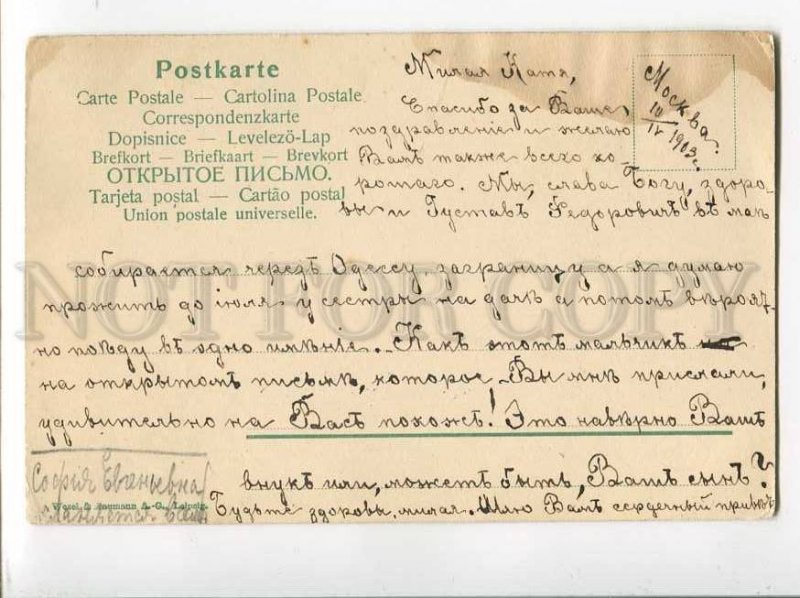 Postkarte
Carte Postale — Cartolina Postale
Correspondenzkarte
Dopisnice — Levelezö-Lap
Brefkort — Briefkaart — Brevkort
ОТКРЫТОЕ ПИСЬМО.
Tarjeta postal — Cartão postal
Union postale universelle.
Москва.
10/IV 1903 г.
Милая Катя,
Спасибо за Ваше
поздравленіе и желаю
Вамъ также всего хо-
рошаго. Мы, слава Богу, здоро-
вы и Густавъ Федоровичъ въ маѣ
собирается черезъ Одессу заграницу а я думаю
прожить до іюля у сестры на дачѣ а потомъ вѣроят-
но поѣду въ одно имѣніе. Какъ этотъ мальчикъ
на открытомъ письмѣ, которое Вы мнѣ прислали,
удивительно на Васъ похожъ! Это навѣрно Вашъ
внукъ или, можетъ быть, Вашъ сынъ?
Будьте здоровы, милая. Шлю Вамъ сердечный привѣтъ
Софія Евгеньевна
кланяется
Wezel & Naumann A.-G., Leipzig.
NOT FOR COPY